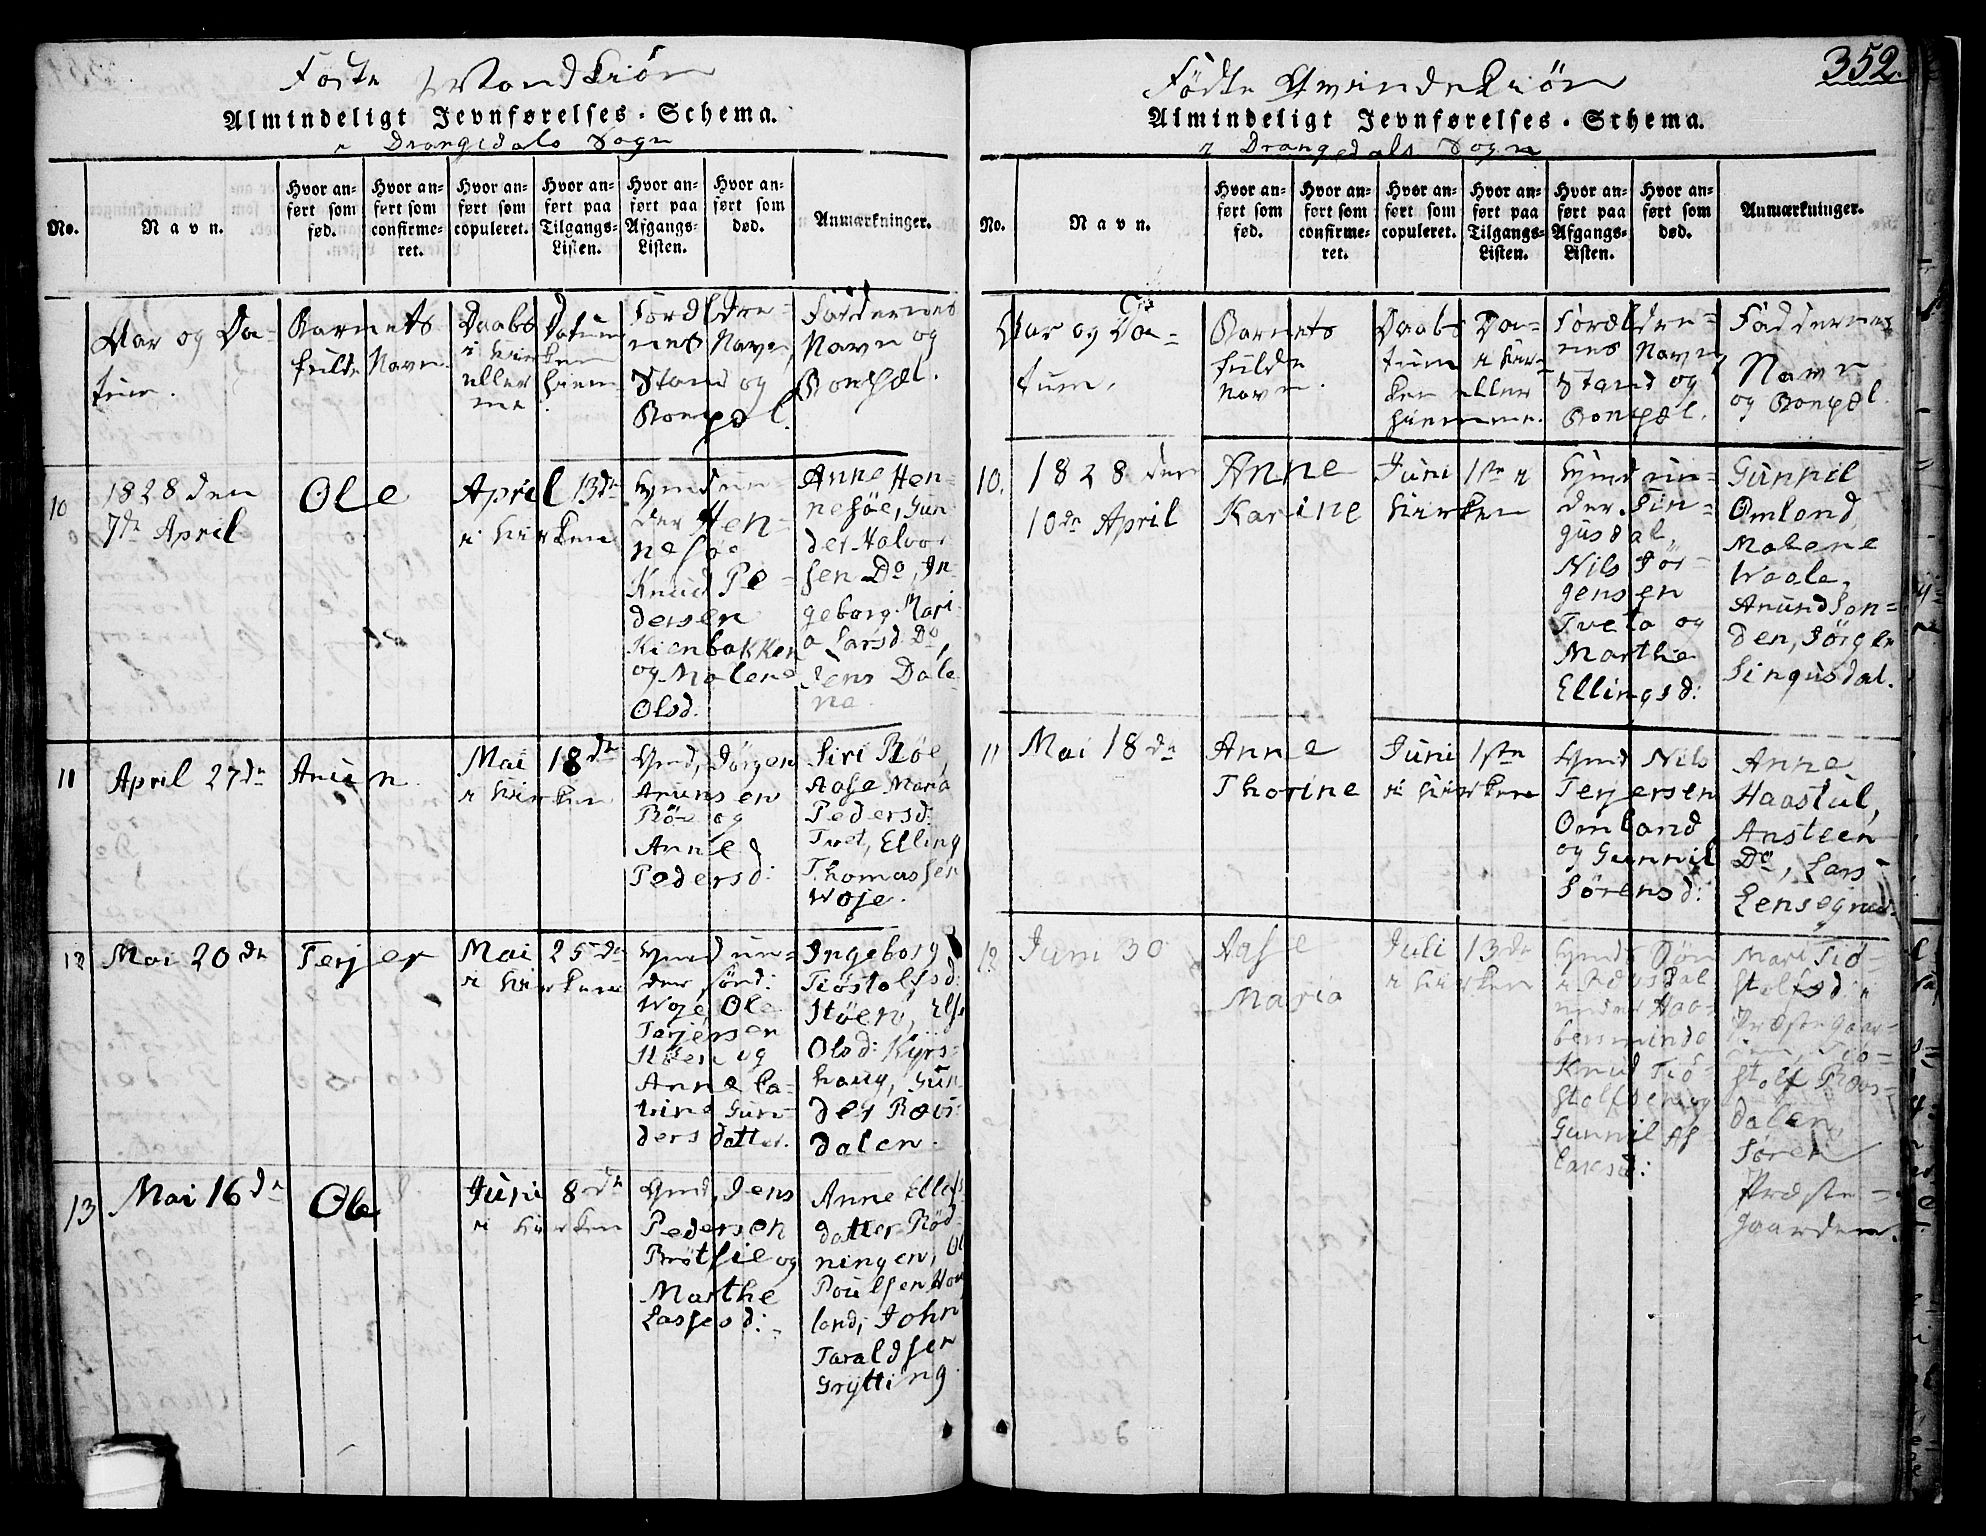 Födte Mandkiön
Almindeligt Jevnførelses-Schema.
i Drangedals Sogn
No.
Navn.
Hvor an-
ført som
fød.
Hvor an-
ført som
confirme-
ret.
Hvor an-
ført som
copuleret.
Hvor an-
ført paa
Tilgangs-
Listen.
Hvor an-
ført paa
Afgangs-
Listen.
Hvor an-
ført som
død.
Anmærkninger.
Aar og Da-
tum.
Barnets
fulde Navn.
Daabs Datum
i Kirken
eller hiem-
me.
Forældre-
nes Navn,
Stand og
Bopæl.
Faddernes
Navn og
Bopæl.
10
1828 den
7de April
Ole
April 13de
i Kirken
Hmd un-
der Hen-
nesöe
Knud Pe-
dersen
Kienbakken
og Malene
Olsd:
Anne Hen-
nesöe, Gun-
der Halvor-
sen Do, In-
geborg Mari-
a Larsd: Do,
Jens Dale-
ne.
11
April 27de
Anun
Mai 18de
i Kirken
Hmd, Jörgen
Anunsen
Röe og
Anne
Pedersd:
Siri Röe,
Aase Maria
Pedersd:
Tvet, Elling
Thomassen
Woje.
12
Mai 20de
Terjer
Mai 25de
i Kirken
Hmd un-
der
Woje Ole
Terjersen
Stöen og
Anne Ca-
trine Gun-
dersdatter.
Ingeborg
Tiöstolfsd:
Stöen, Else
Olsd: Kyrs-
haug, Gun-
der Rævs-
dalen.
13
Mai 16de
Ole
Juni 8de
i Kirken
Hmd, Jens
Pedersen
Bröthie og
Marthe
Lassesd:
Anne Ellefs
datter Röd-
ningen, Ol
Poulsen Hou
land, John
Taraldsen
Grytting
352.
Födte Qvindekiön
Almindeligt Jevnførelses-Schema.
i Drangedals Sogn
No.
Navn.
Hvor an-
ført som
fød.
Hvor an-
ført som
confirme-
ret.
Hvor an-
ført som
copuleret.
Hvor an-
ført paa
Tilgangs-
Listen.
Hvor an-
ført paa
Afgangs-
Listen.
Hvor an-
ført som
død.
Anmærkninger.
Aar og Da-
tum.
Barnets
fulde
Navn.
Daabs Da-
tum i Kir-
ken eller
hiemme.
Foræl dre-
nes Navn,
Stand og
Bopæl.
Faddernes
Navn
og Bopæl.
10.
1828 den
10de April
Anne
Karine
Juni 1ste i
Kirken
Hmd un-
der Sin-
gusdal,
Nils Jör-
gensen
Tveta og
Marthe
Ellingsd:
Gunnil
Omland,
Malene
Waale,
Anund Son-
den, Jörgen
Singusdal.
11
Mai 18de
Anne
Thorine
Juni 1ste
i Kirken
Hmd Nils
Terjersen
Omland
og Gunnil
Sörensd:
Anne
Haastul,
Ansteen
Do, Lars
12
Juni 30
Aase
Maria
Juli 13de
i Kirken
Hmd:
i Rævsdal
under Haa-
Knud Tiö-
stolfsen og
Gunnil As-
lacsd:
Mari Tiö-
stolfsd: i
Præstegaar-
den, Tiö-
stolf Rævs-
dalen,
Sören
Præste-
gaarden.